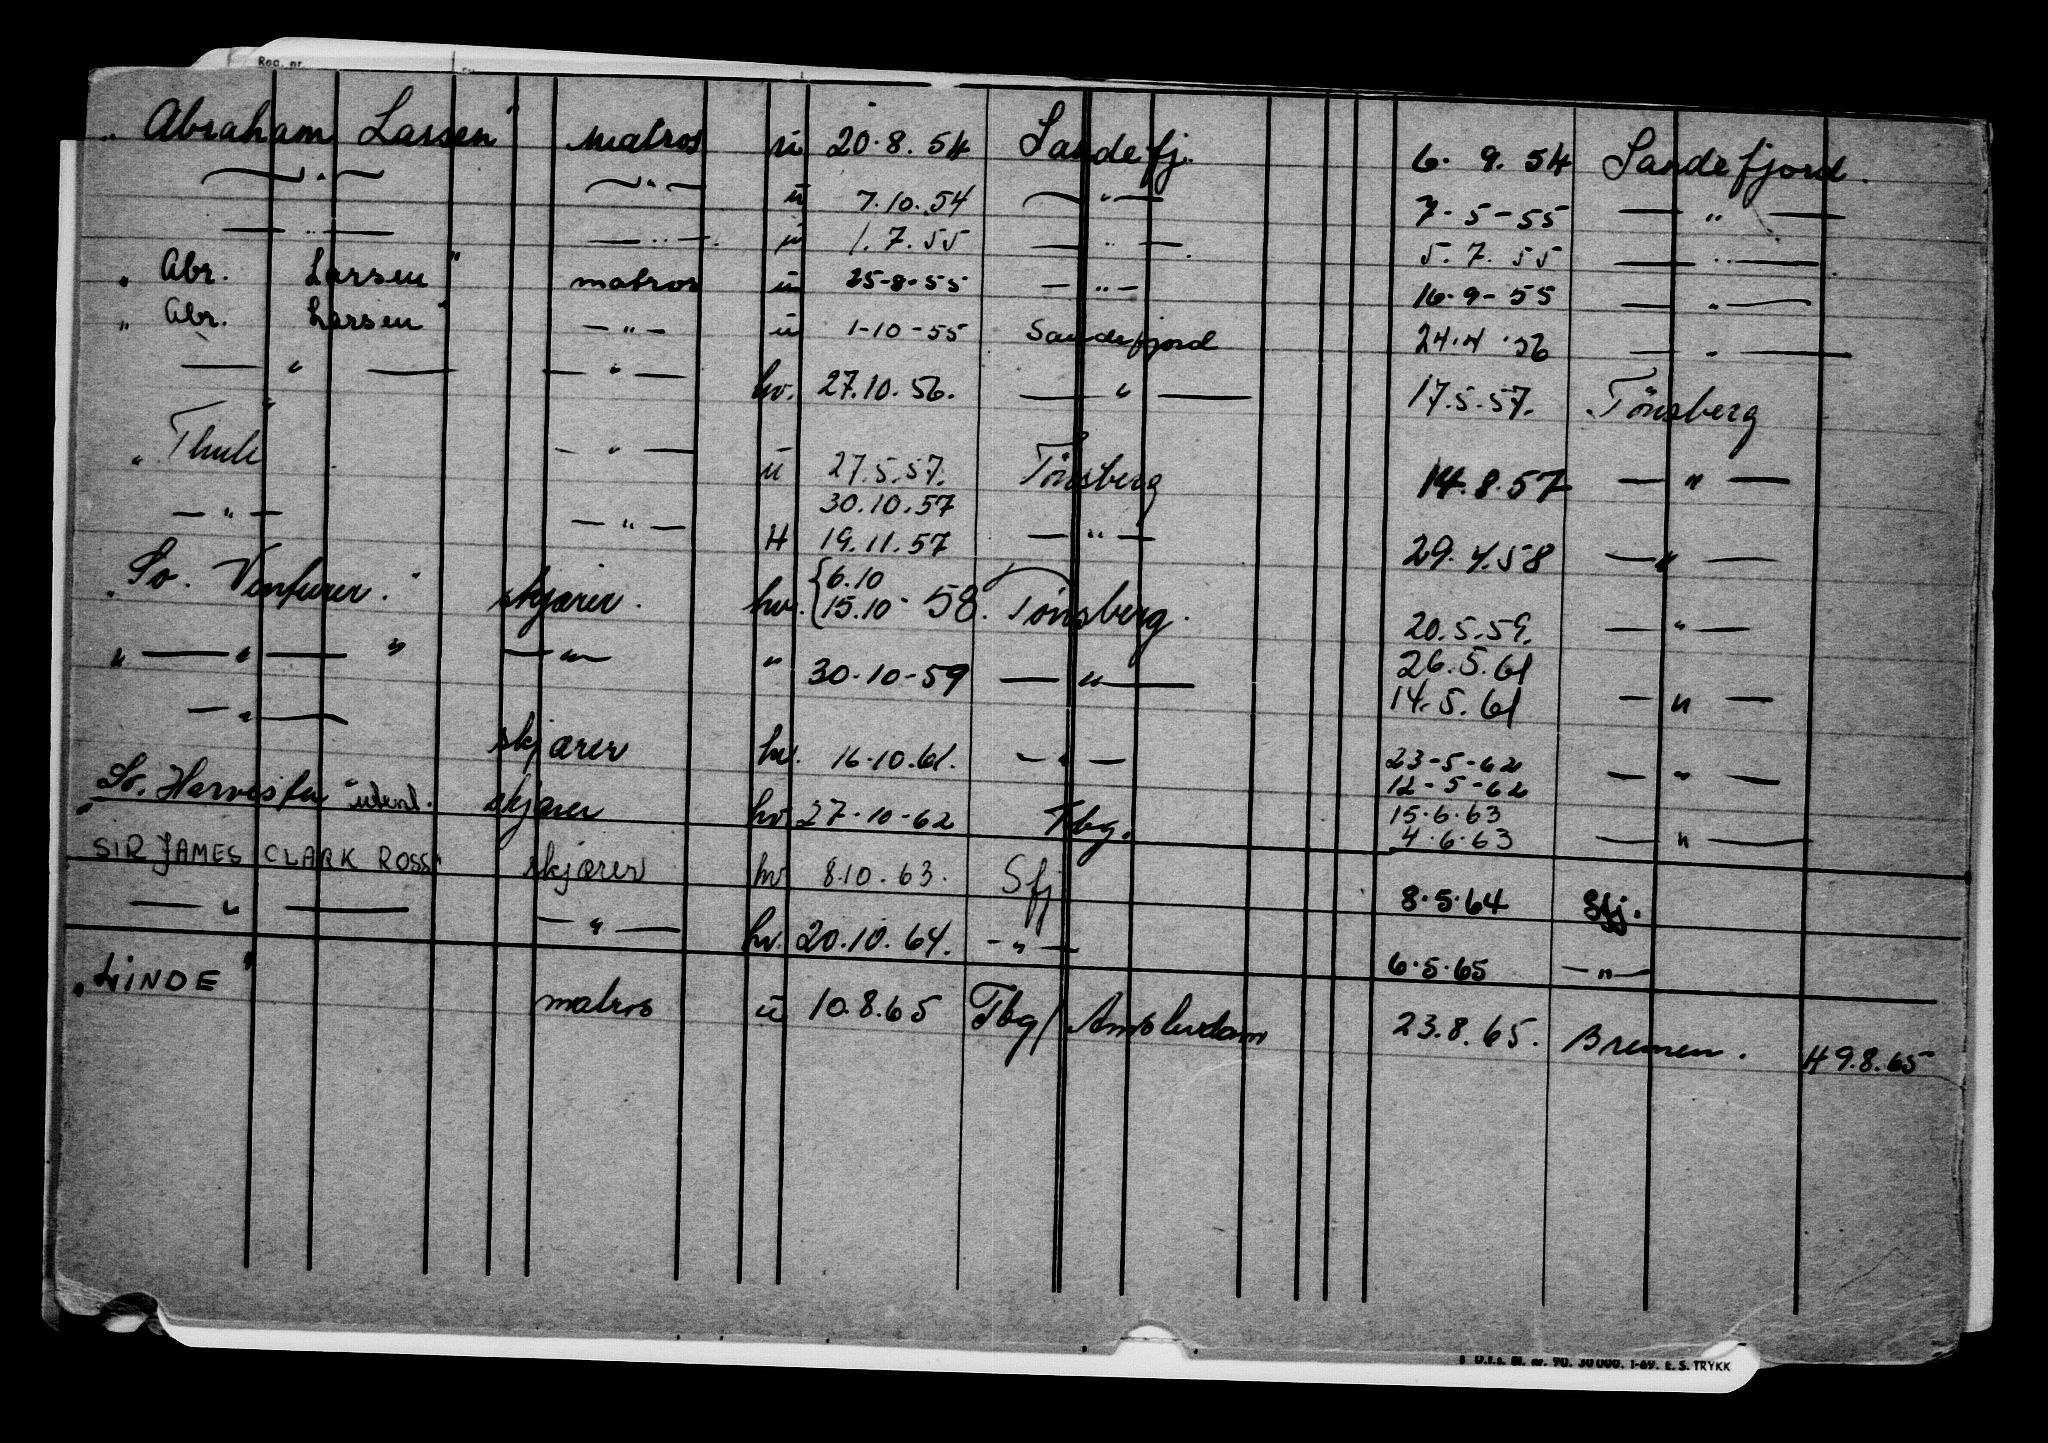 Reg. nr.
"Abraham Larsen" matros u 20.8.54 Sandefj. 6. 9. 54 Sandefjord.
— " — — " — u 7.10.54 — " — 7-5-55 — " —
— " — — " — u 1.7.55 — " — 5.7.55 — " —
"Abr. Larsen" matros u 25-8-55 — " — 16-9-55 — " —
"Abr. Larsen" — " — u 1-10-55 Sandefjord 24.4.56 — " —
— " — — " — hv. 27.10.56. — " — 17.5.57. Tönsberg
"Thule" — " — u 27.5.57. Tönsberg 14.8.57 — " —
30.10.57
— " — — " — H 19.11.57 — " — 29.4.58 — " —
"So. Venturer." skjærer. hv. {6.10 15.10- 58. Tönsberg. 20.5.59. — " —
" — " — " — " — " 30-10-59 — " — 26.5.61
14.5.61 — " —
— " — skjærer hv. 16-10.61. — " — 23-5-62
12-5-62 — " —
"So. Harvester" utenl. skjærer hv. 27-10-62 Tbg. 15.6.63
4.6.63 — " —
SIR JAMES CLARK ROSS" skjærer hv 8.10.63. Sfj 8.5.64 Sfj.
— " — — " — hv. 20.10.64. — " — 6.5.65 — " —
"LINDE" matros u 10.8.65 Tbg/Amsterdam 23.8.65. Bremen. H 9.8.65
D.f.s. Bl. nr. 90. 30 000. 1-69. E. S. TRYKK